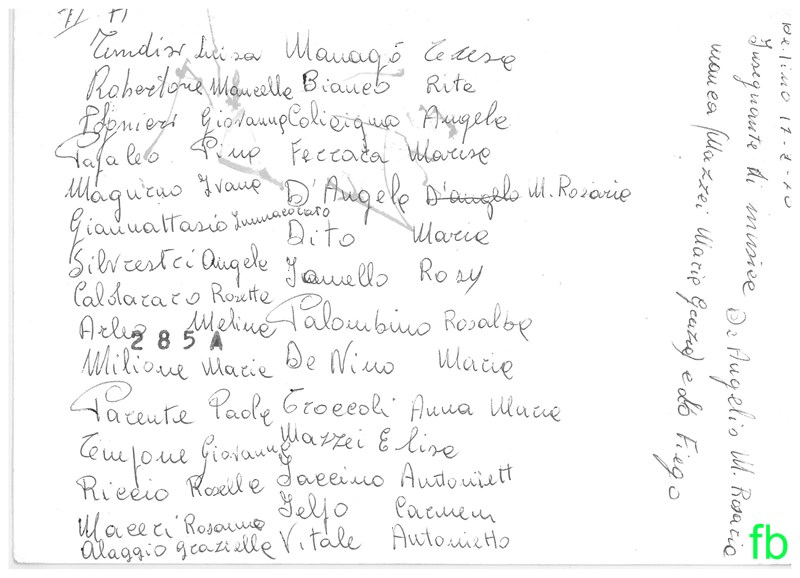 II A
Tundisi Luisa Managò Teresa
Robertone Marcella Bianco Rita
Giovanna Colicigno Angela
Pafaleo Pina Ferrara Marisa
Magurno Ivana D'Angelo D'angelo M. Rosaria
Giannattasio Immacolato Dito Maria
Silvrestri Angela Iannello Rosy
Caldararo Rosetta
Arleo Melina Palombino Rosalba
285A
Milione Maria De Nino Maria
Parente Paola Troccoli Anna Maria
Tempone Giovanna Mazzei Elisa
Riccio Rosella Iaccino Antoniett
Maceri Rosanna Ielpo Carmen
Alaggio Graziella Vitale Antonietta
Insegnante di musica De Angelis M. Rosaria
manca (Mazzei Maria Grazia) e Lo Fiego
fb